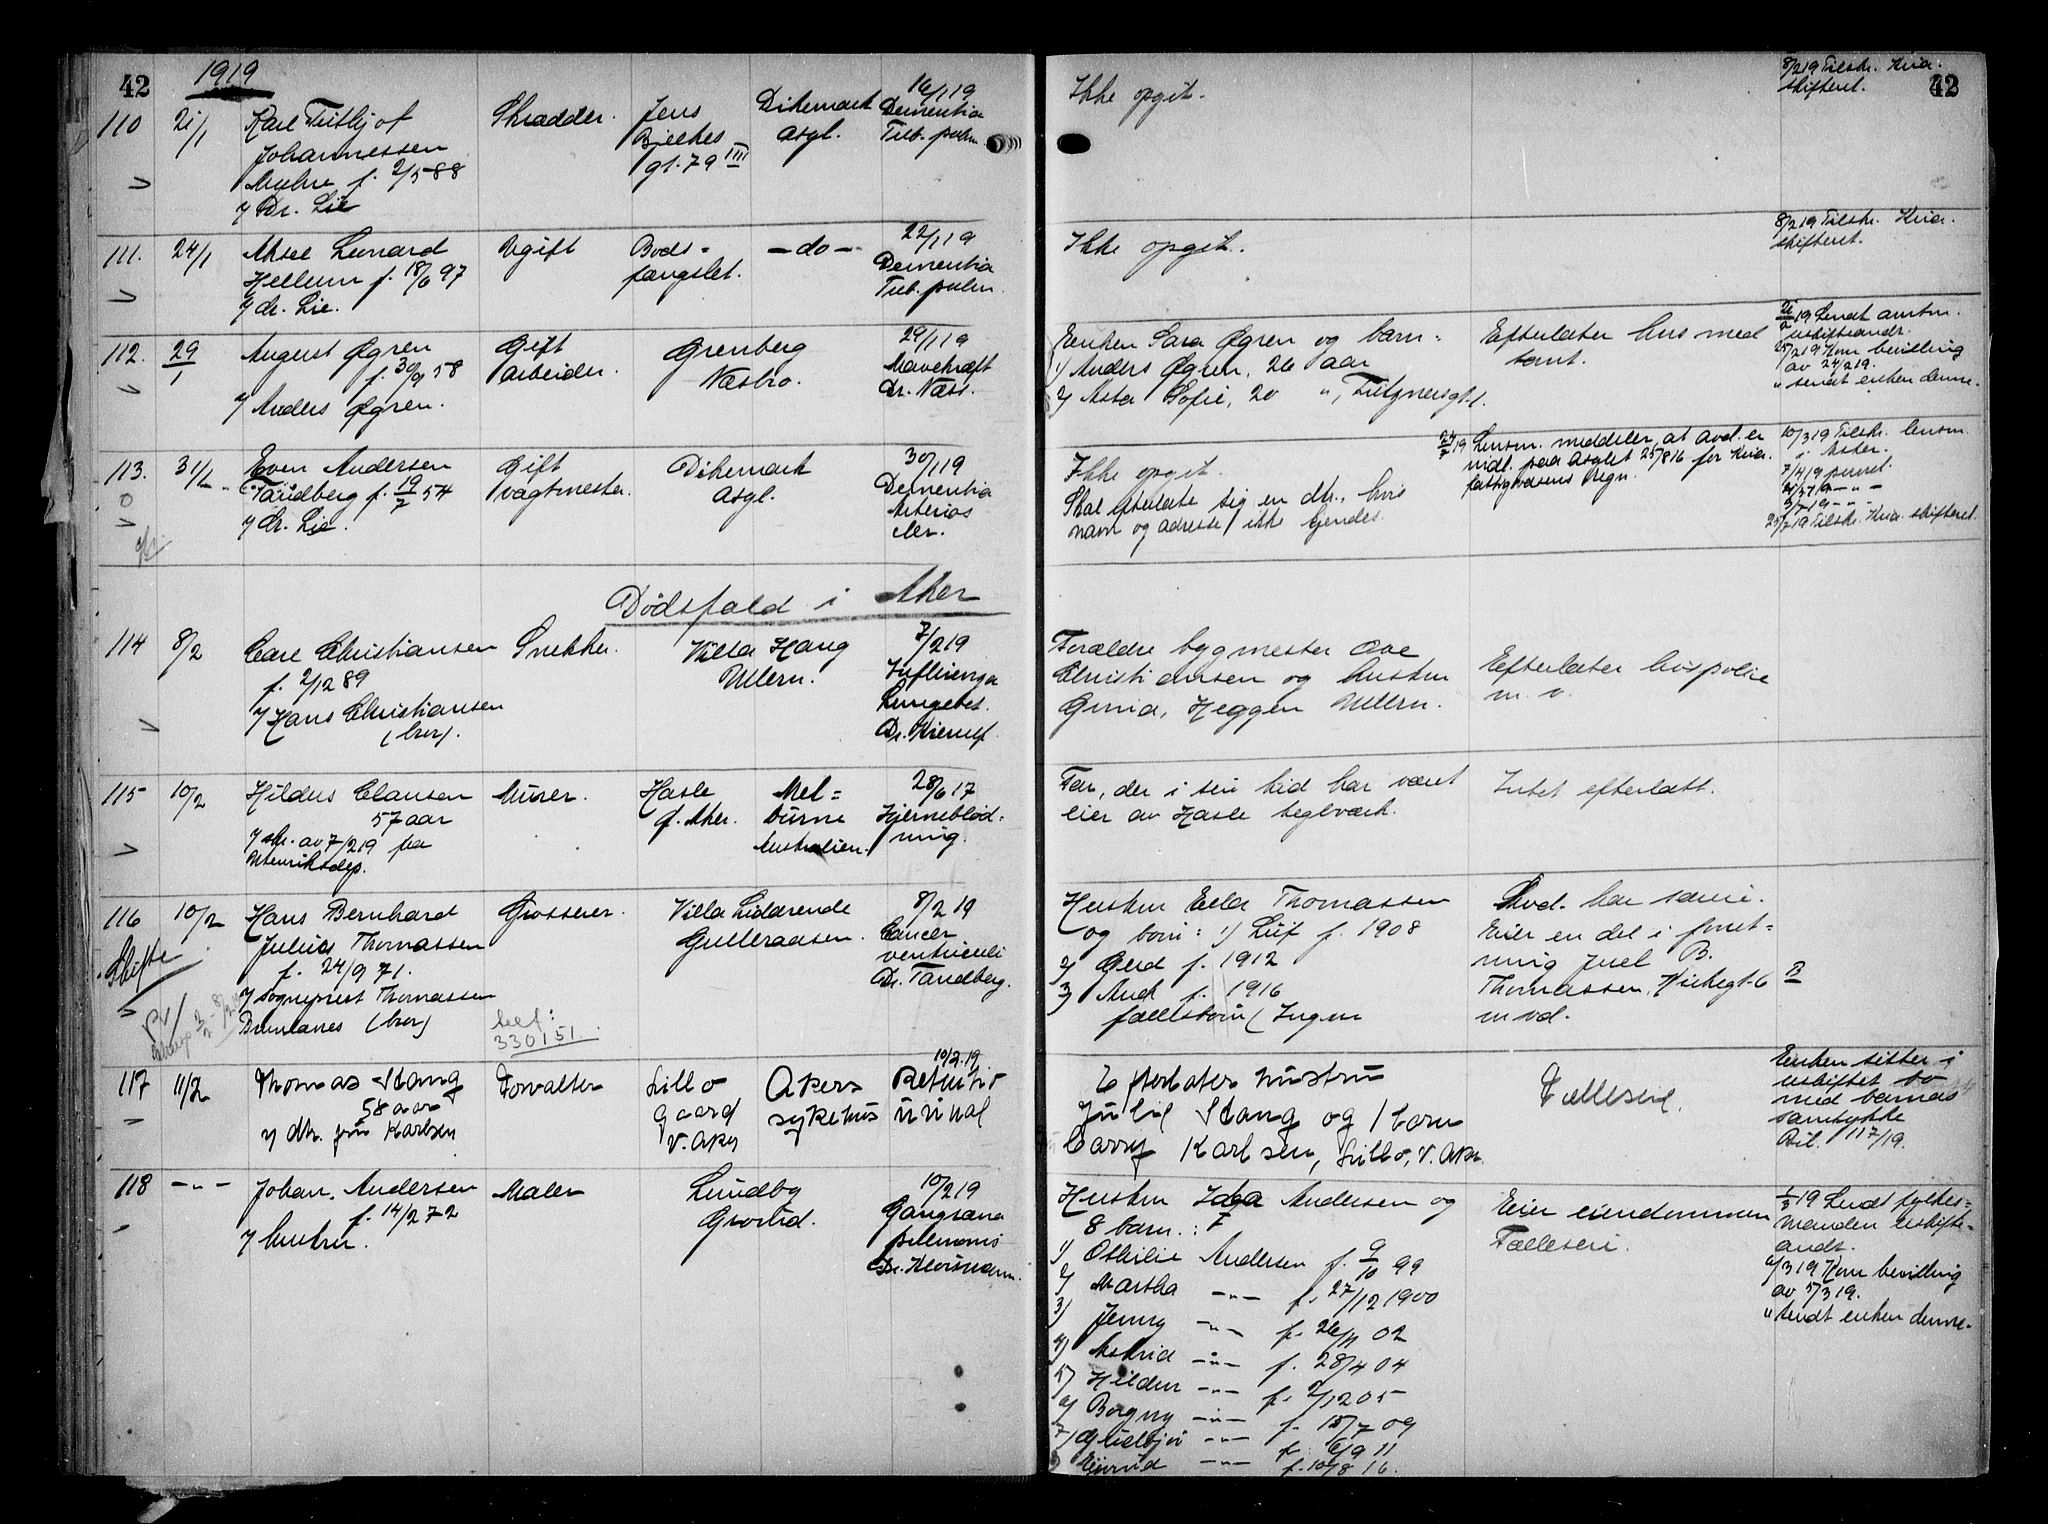 42
1919
110
21/1
Karl Fritjof
Johannessen
Myhre f. 2/5 88
v/ Dr. Lie
Skrædder.
Jens
Bjelkes
gt. 79 III
Dikemark
Asyl.
16/1 19
Dementia
Tub. pulm.
Ikke opgit.
8/2 19 Tilskr. Kria.
skifteret.
42
111.
24/1
Aksel Leonard
Hellum f. 18/6 97
v/ dr. Lie.
Ugift
Bods-
fængslet.
—do—
22/1 19
Dementia
Tub. pulm.
Ikke opgit.
8/2 19 Tilskr. Kria.
skifteret.
112.
29/1
August Øgren
f. 30/9 58
v/ Anders Øgren.
Gift
arbeider.
Grenberg
Næsbro.
29/1 19
Mavekræft
Dr. Næss.
Enken Sara Øgren og barn:
1) Anders Øgren, 26 aar
2) Asta Sofie, 20 " ,
Efterlater hus med
tomt.
19 Sendt amtm.
uskifteandr.
25/2 19 Kom bevilling
av 24/2 19.
" sendt enken denne.
113.
31/1
Even Andersen
Tandberg f. 19/7 54
v/ dr. Lie.
Gift
vagtmester.
Dikemark
Asyl.
30/1 19
Dementia
Arterios
cler.
Ikke opgit.
Skal efterlate sig en dtr., hvis
navn og adresse ikke kjendes.
24/7 19 Lensm. meddeler, at avd. er
indl. paa Asylet 25/8 16 for Kria.
fattigvæsens regn.
10/3 19 Tilskr. lensm.
i Asker.
7/4 19 purret.
25/7 19 Tilskr. Kria. skifteret.
Dødsfald i Aker
114
8/2
Carl Christiansen
f. 2/12 89
v/ Hans Christiansen
(bror).
Snekker.
Villa Haug
Ullern.
7/2 19
Influenza
Lungebet.
Dr. Kierulf.
Forældre bygmester Ole
Christiansen og hustru
Gunia, Heggen Ullern.
Efterlater huspolise
m. v.
115
10/2
Hildus Clausen
57 aar
v/ skr. av 7/2 19 fra
Utenriksdep.
Murer.
Hasle
Ø. Aker.
Mel-
burne
Australien.
28/6 17
Hjerneblød-
ning.
Far, der i sin tid har været
eier av Hasle teglverk.
Intet efterlatt.
116
10/2
Skifte
Hans Bernhard
Julius Thomassen
f. 24/9 71.
v/ sogneprest Thomassen
Brunlanes (bror)
Grosserer.
telf:
330151
Villa Liddarende
Gulleraasen.
8/2 19
Cancer
ventriculi
Dr. Tandberg.
Hustru Ella Thomassen
og barn: 1) Leif f. 1908
2) Gerd f. 1912
3) f. 1916
fællesbarn (Ingen
Avd. har særeie.
Eier en del i forret-
ning Juel B.
Thomassen, Kirkegt. 6
m. v.
117
11/2
Thomas Stang
58 aar
v/ dtr. fru Karlsen
Forvalter
Lillo
gaard
V. Aker
Akers
sykehus
10/2. 19
Retentio
urinal
Efterlater hustru
Julie Stang og 1 barn
Carry Karlsen, Lillo, V. Aker.
Fælleseie.
Enken sitter i
uskiftet bo
med barnas
samtykke
Bil. 117/19.
118
—"—
Johan. Andersen
f. 14/2 72
v/ hustru.
Maler
Lundby
Grorud.
10/2 19
Gangræna
pulmonis
Dr. Kloumann.
Hustru Ida Andersen og
8 barn. :
1) Othilie Andersen f. 9/10 99
2) Martha —"— f. 27/12 1900
3) Jenny —"— f. 26/9 02
4) Astrid —"— f. 28/4 04
5) Hildur —"— f. 2/12 05
6) Borgny —"— f. 15/7 09
7) —"— f. 6/9 11
—"— f. 10/8 16.
Eier eiendommen
Fælleseie.
1/3 19 Sendt fylkes-
manden uskifte-
andr.
6/3 19 Kom bevilling
av 5/3 19.
" sendt enken denne.